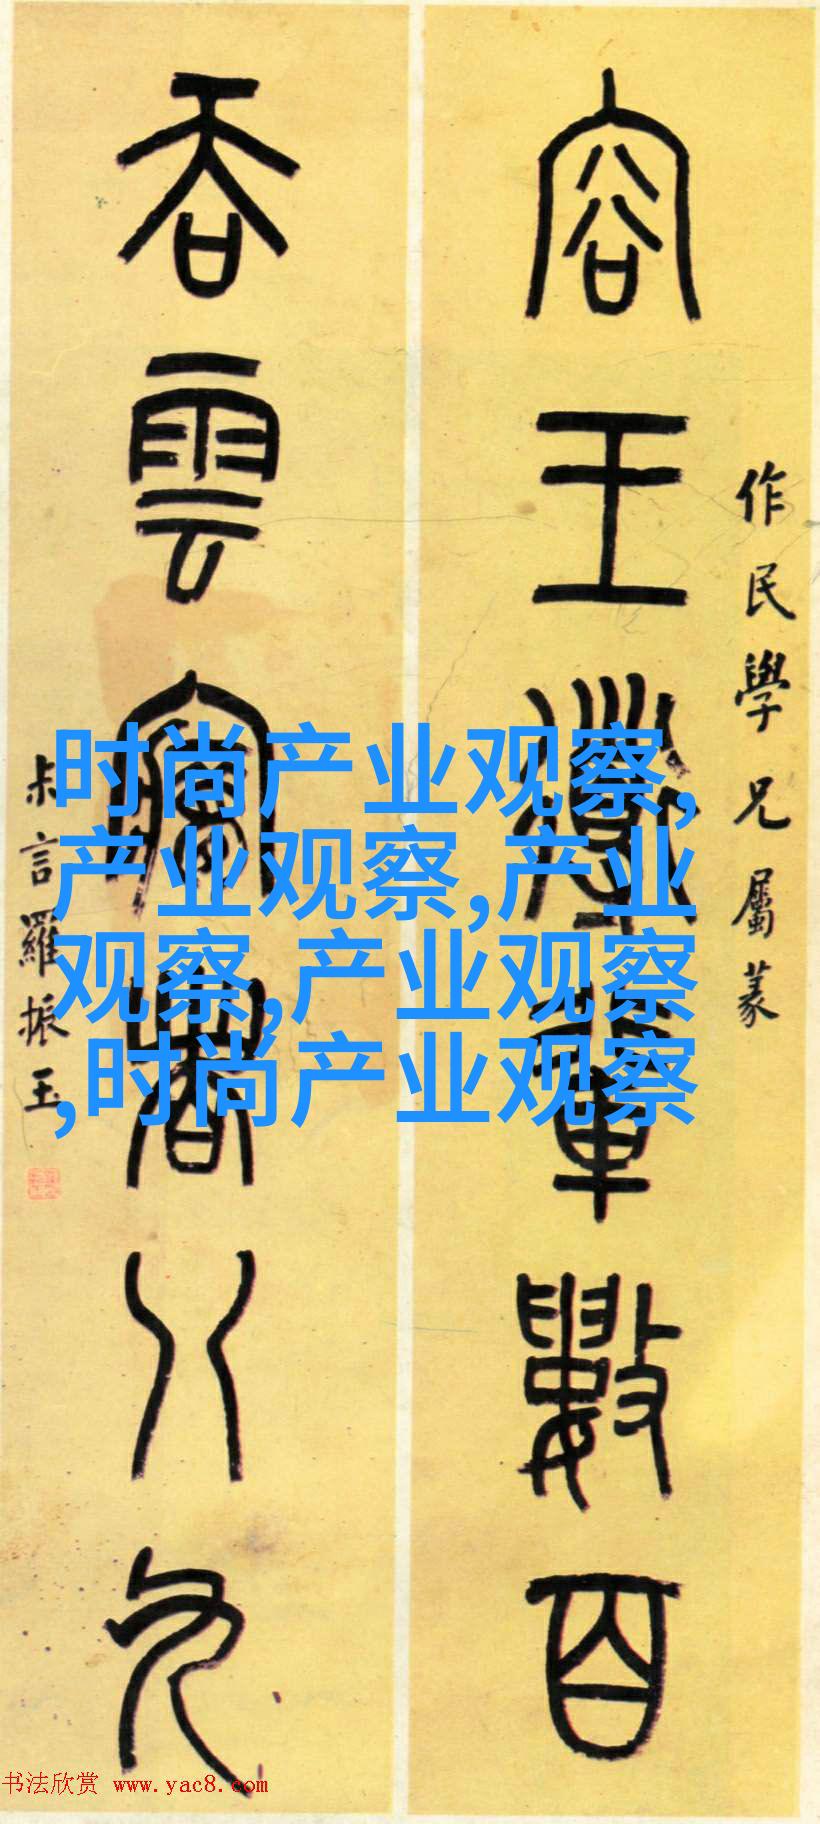 作民學兄屬篆
容王導輩數百
吞雲夢者八九
叔言羅振玉
时尚产业观察,
产业观察,产业
观察,产业观察
,时尚产业观察
书法欣赏 www.yac8.com